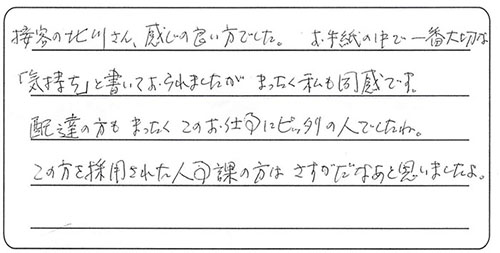 接客の北川さん、感じの良い方でした。 お手紙の中で一番大切な
「気持ち」と書いておられましたが まったく私も同感です。
配達の方も まったく このお仕事にピッタリの人でしたね。
この方を採用された人事課の方は さすがだなあと思いましたよ。